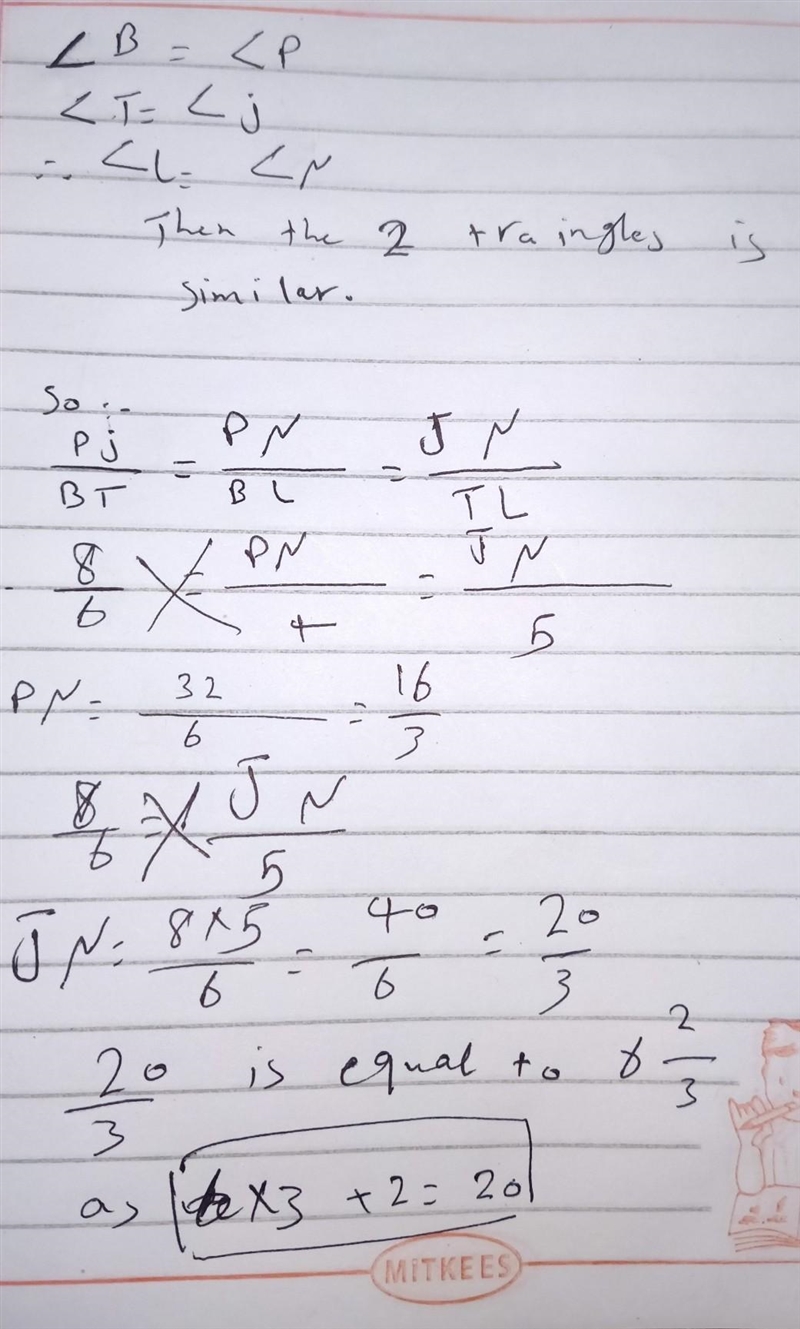 ∠B = ∠P
∠T = ∠j
∴ ∠L = ∠N
Then the 2 traingles is
similar.
So :-
Pj/BT = PN/BL = JN/TL
8/6 = PN/4 = JN/5
PN = 32/6 = 16/3
8/6 = JN/5
JN = 8×5/6 = 40/6 = 20/3
20/3 is equal to 6 2/3
as ×3 + 2 = 20
MITKEES